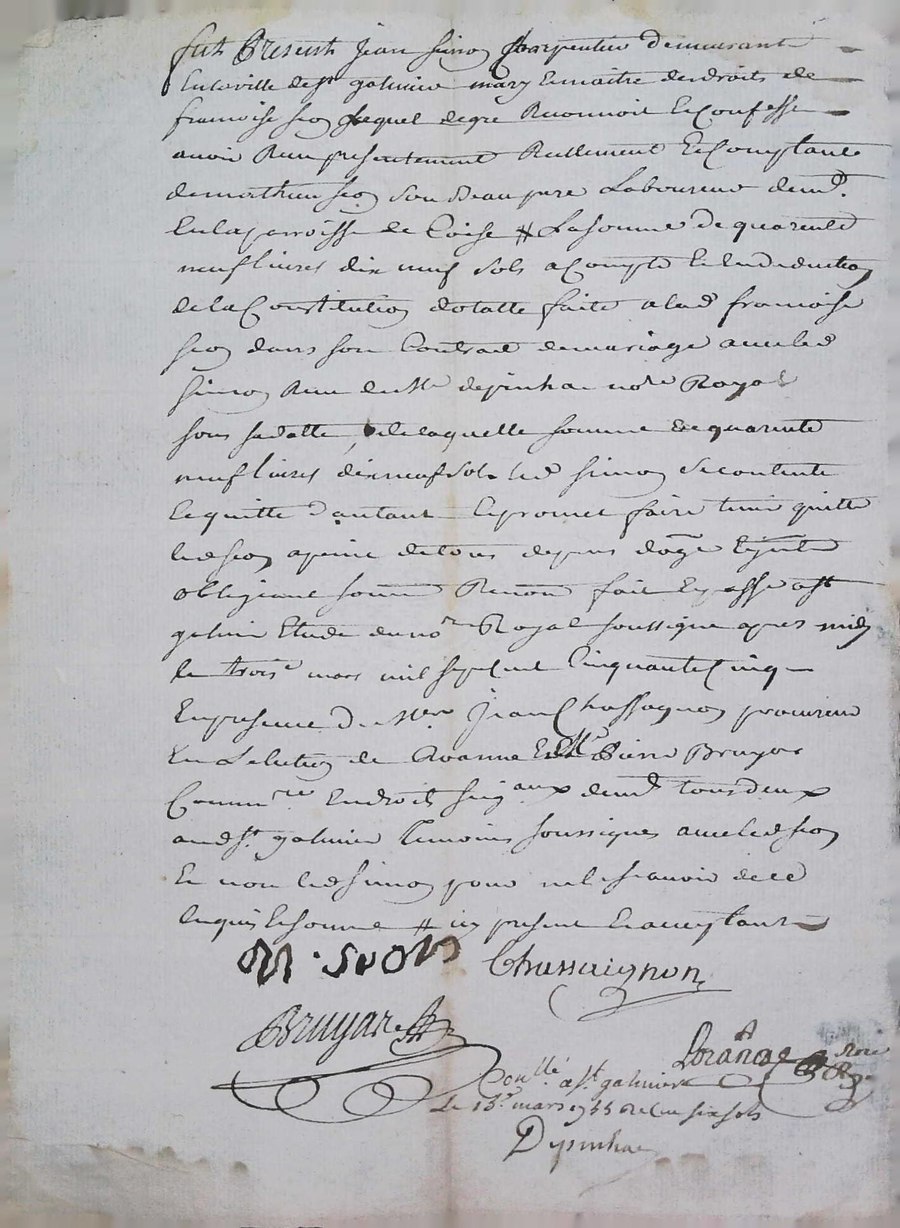 fut Present jean simon charpentier demeurant
en la ville de st galmier mary et maitre des droits de
francoise seon lequel de gre Reconnoit et Confesse
avoir Recu presentement Reellement et Comptant
de mathieu seon son Beau pere Laboureur demt
en la parroisse de Coise # La somme de quarente
neuf livres dix neuf sols a Compte et en deduction
de la Constitution dotalle faite a lad francoise
seon dans son Contract de mariage avec led
simon Recu de Me depinhac nore Royal
sous sa datte, de laquelle somme de quarente
neuf livres dix neuf sols led simon se contente
en quitte d'autant et promet faire tenir quitte
led seon a peine de tous depens
obligeant soum Renon fait et passe a st
galmier Etude du nore Royal soussigne apres midy
le trois mars mil sept cent Cinquante Cinq
En presence de jean Chassagnon procureur
en Lelection de Roanne et Me Pierre Bruyas
Commre en droits seigaux demt tous deux
aud st galmier temoins soussignes avec led seon
Et non led simon pour ne le scavoir de ce
enquis et somme # icy present et acceptant
M. SEON Chassaignon
Bruyas
Conllé a st galmier
Le 13e mars 1755 Recu six sols
Depinhac